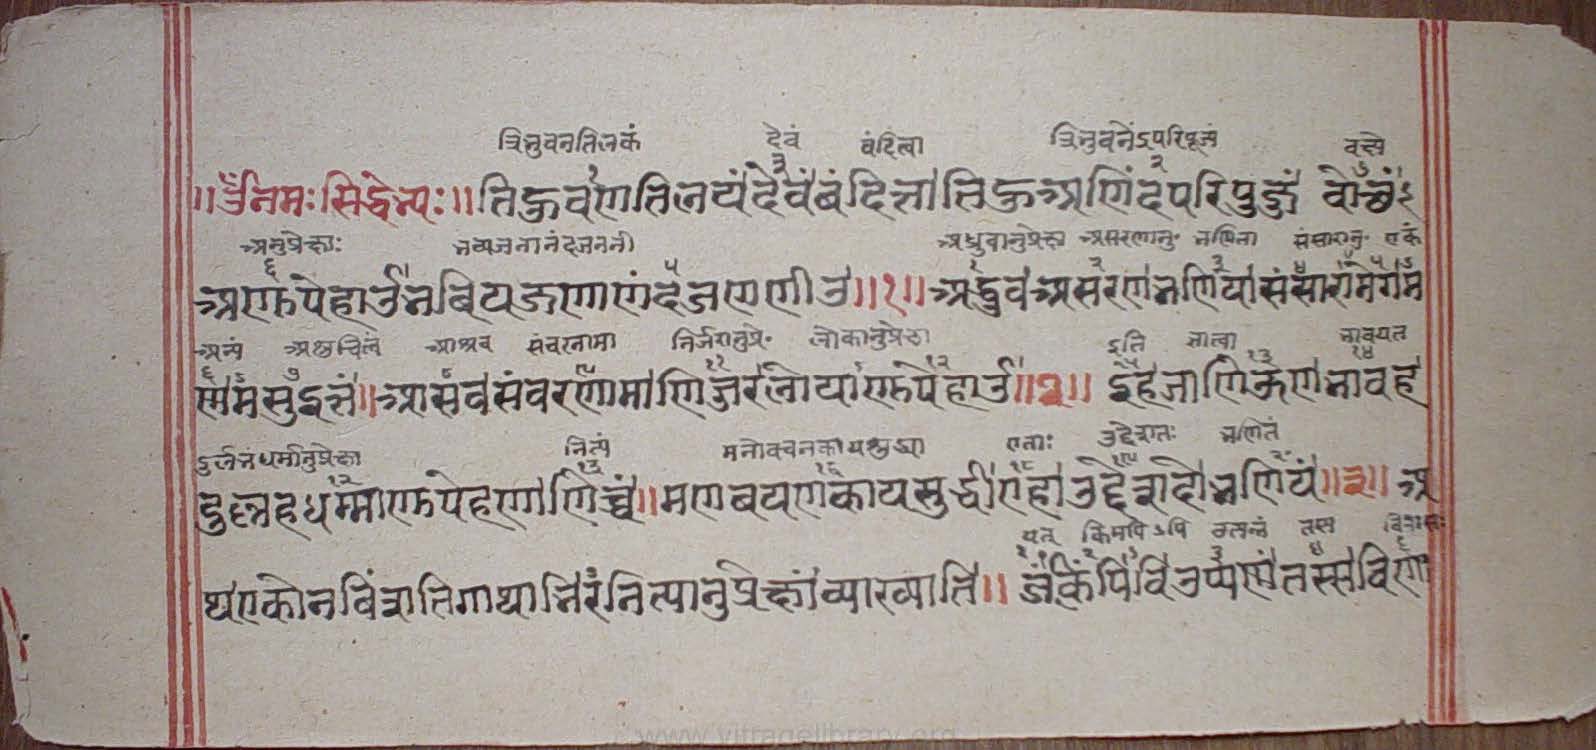 त्रिभुवनतिलकं देवं वंदित्वा त्रिभुवनेंऽपरिपूज्यं वक्ष्ये
॥ॐ नमः सिद्धेभ्यः॥ तिहुवणतिलयं देवं वंदित्ता तिहुअणिंदपरिपुज्जं वोच्छं
अनुप्रेक्षाः भव्यजनानंदजननी अध्रुवानुप्रेक्षा असरणानु॰ भणिता संसारानु॰ एकं
अणुपेहाउ भवियजणाणंदजणणीउ॥१॥ अद्धुव असरण भणिया संसारामेगम
अन्यं अशुचित्वं आश्रव संवरनामा निर्जरानुप्रे॰ लोकानुप्रेक्षा इति ज्ञात्वा भावयत
ण्णमसुइत्तं॥ आसव संवरणामा णिज्जर लोयाणुपेहाउ॥२॥ इह जाणिऊण भावह
दुर्लभं धर्मानुप्रेक्षा नित्यं मनोवचनकायशुद्ध्या एताः उद्देशतः भणितं
दुल्लह धम्माणुपेहणाणिच्चं॥ मणवयणकायसुद्धी एहा उद्देशदो भणियं॥३॥ अ
यत् किमपि ऽपि उत्पन्नं तस्य विनाशः
थ एकोनविंशतिगाथाभिरनित्यानुप्रेक्षां व्याख्याति॥ जं किंपि वि उप्पण्णं तस्स विणा
www.vitragelibrary.org